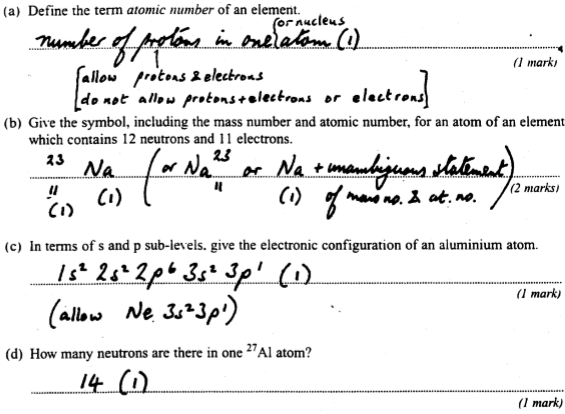 (a) Define the term atomic number of an element.
(or nucleus
number of protons in one atom (1)
(1 mark)
[allow protons & electrons
do not allow protons + electrons or electrons]
(b) Give the symbol, including the mass number and atomic number, for an atom of an element
which contains 12 neutrons and 11 electrons.
23 Na (or Na 23 or Na + unambiguous statement)
11 (1) 11 (1) of mass no. & at. no.
(1)
(2 marks)
(c) In terms of s and p sub-levels. give the electronic configuration of an aluminium atom.
1s² 2s² 2p⁶ 3s² 3p¹ (1)
(1 mark)
(allow Ne 3s² 3p¹)
(d) How many neutrons are there in one ²⁷Al atom?
14 (1)
(1 mark)